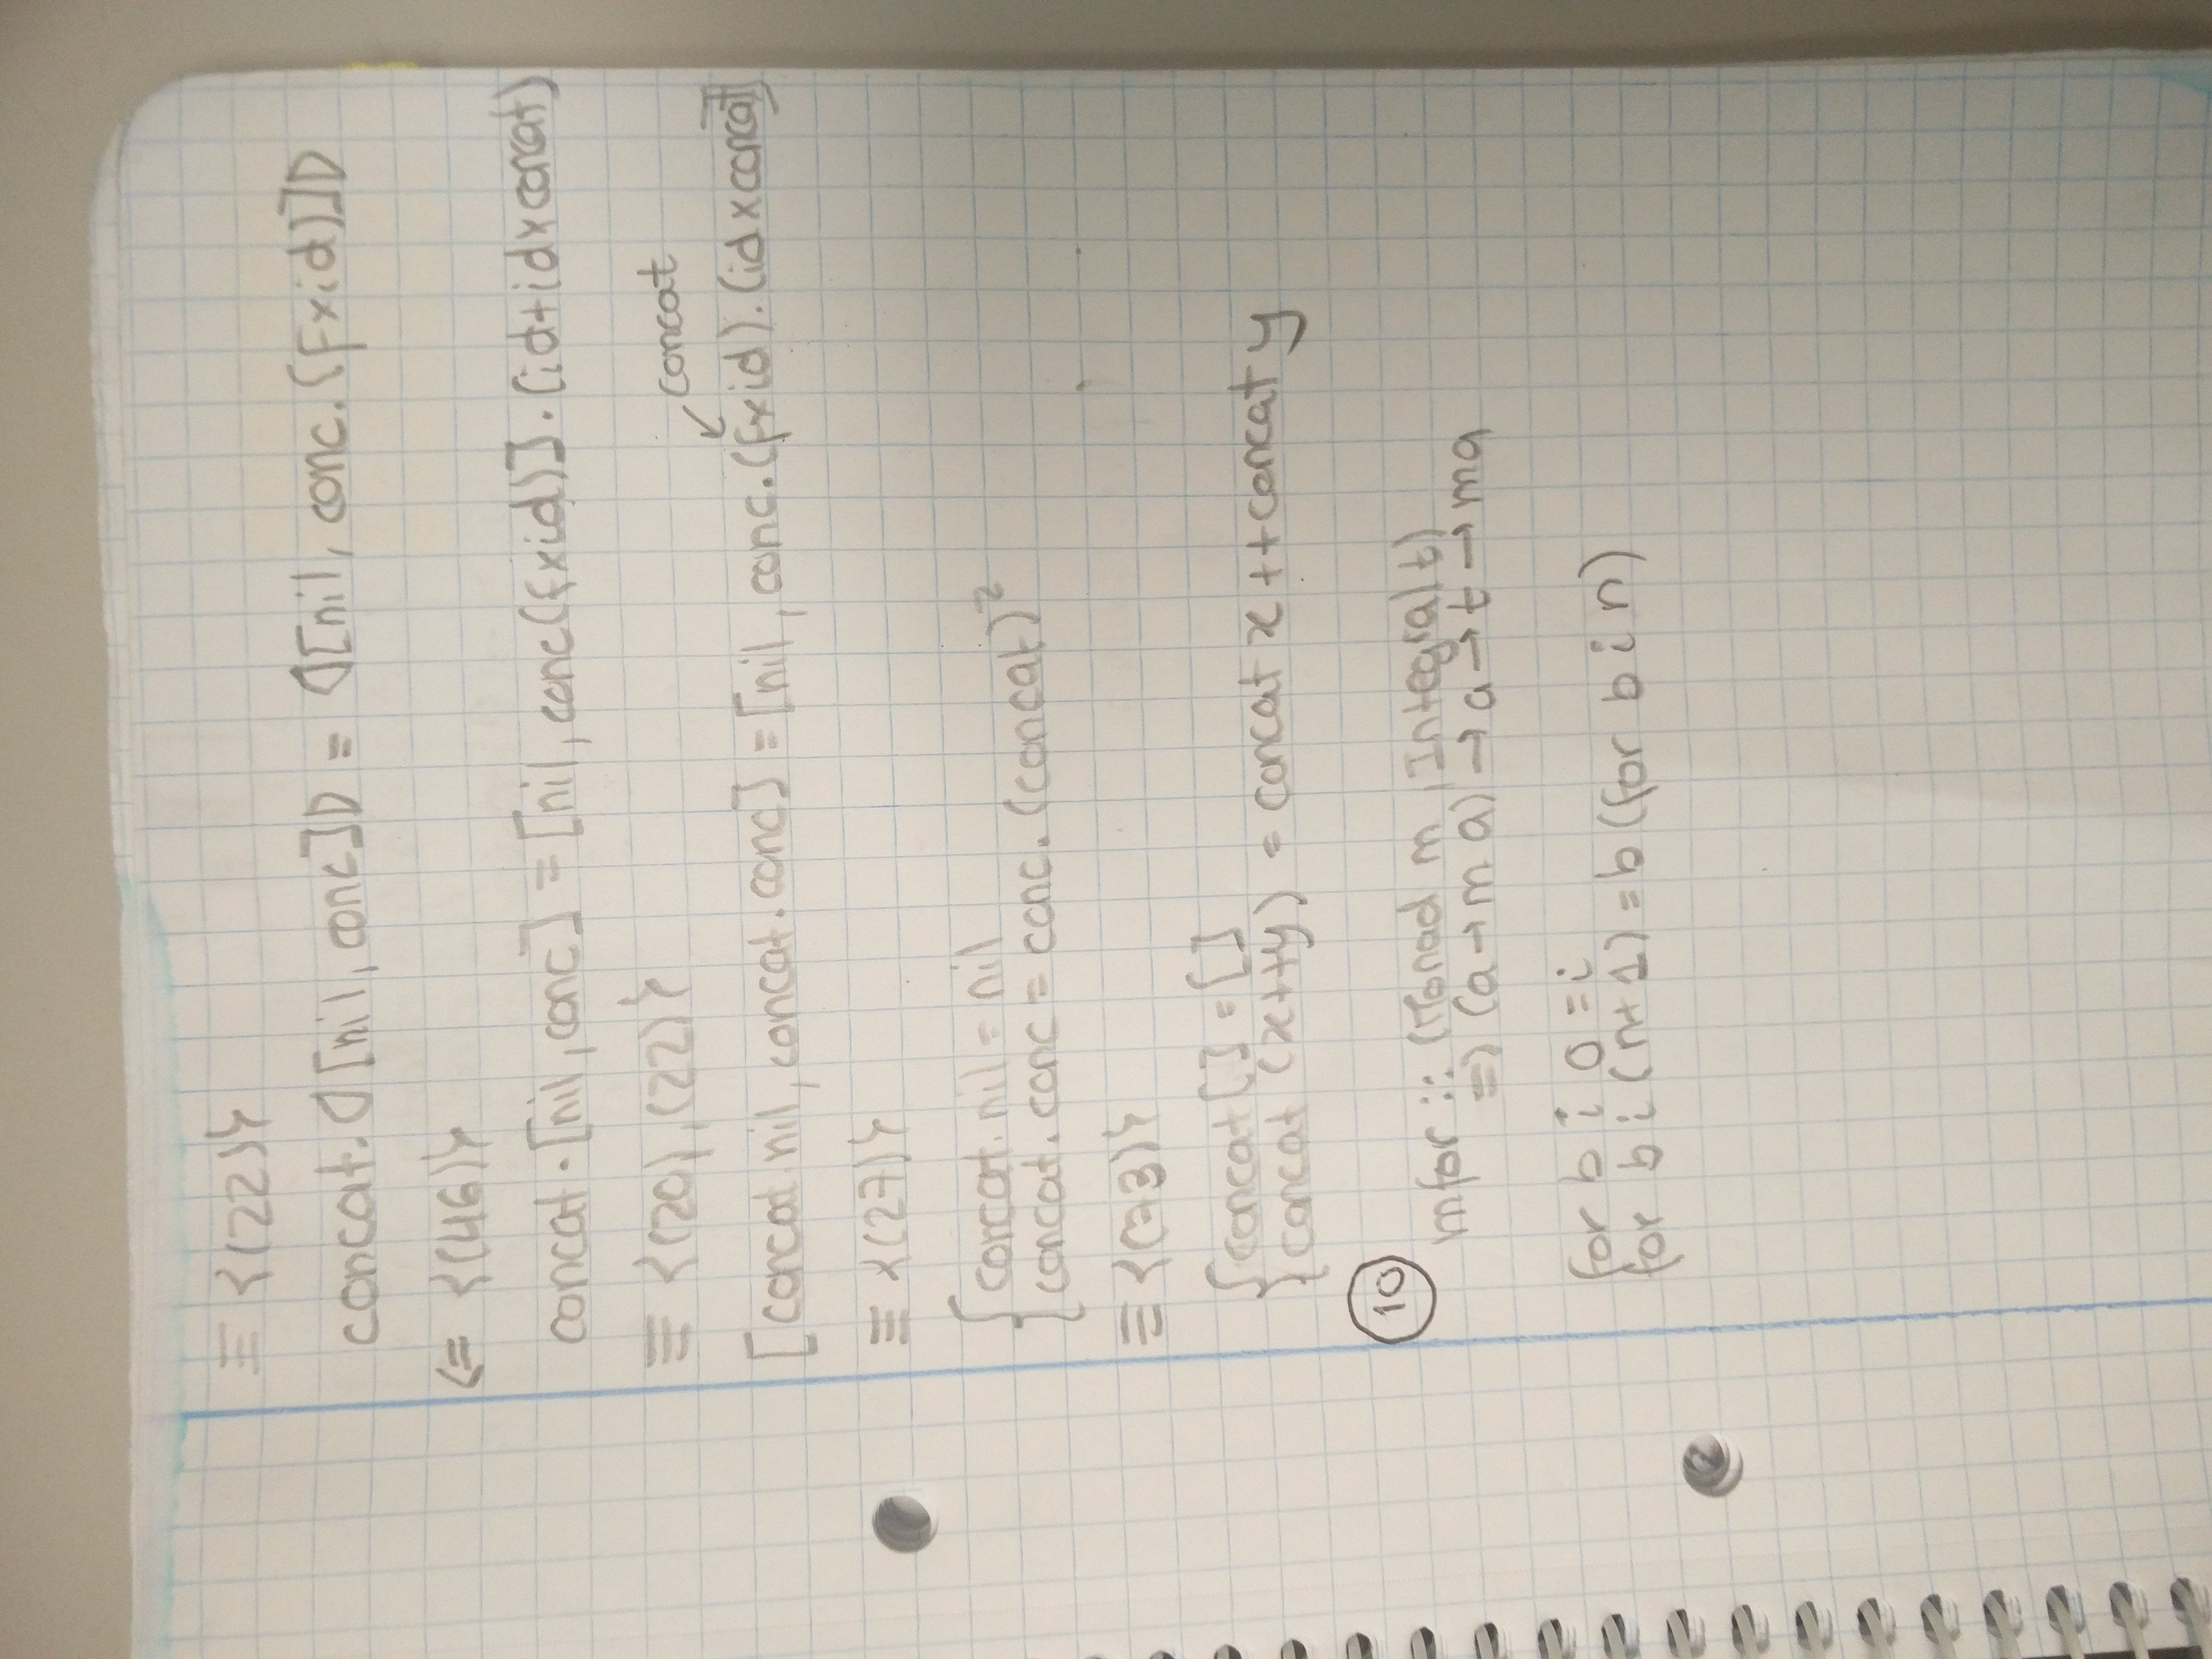 ≡ {(22)}
concat.⦇[nil, conc]⦈ = ⦇[nil, conc.(f×id)]⦈
<= {(46)}
concat.[nil, conc] = [nil, conc(f×id)].(id+id×concat)
≡ {(20),(22)}
concat
[concat.nil, concat.conc] = [nil, conc.(f×id).(id×concat)]
≡ {(27)}
{concat.nil = nil
{concat.conc = conc.(concat)²
≡ {(73)}
{concat [] = []
{concat (x++y) = concat x ++ concat y
10
mfor :: (Monad m, Integral t)
=> (a → m a) → a → t → m a
for b i 0 = i
for b i (n+1) = b (for b i n)